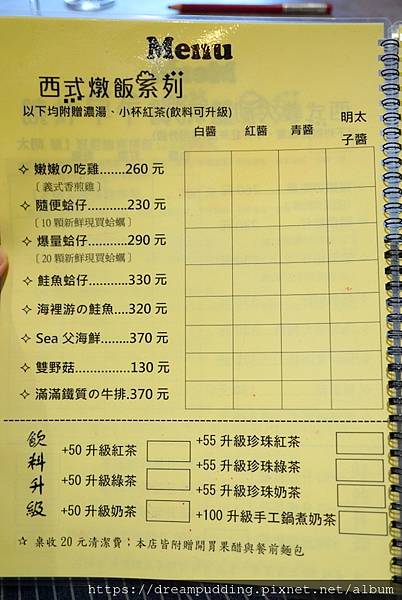 Menu
西式燉飯系列
以下均附贈濃湯、小杯紅茶(飲料可升級)
白醬 紅醬 青醬 明太子醬
✧ 嫩嫩の吃雞.......260 元
〔義式香煎雞〕
✧ 隨便蛤仔...........230 元
〔10 顆新鮮現買蛤蠣〕
✧ 爆量蛤仔...........290 元
〔20 顆新鮮現買蛤蠣〕
✧ 鮭魚蛤仔...........330 元
✧ 海裡游の鮭魚....320 元
✧ Sea 父海鮮........370 元
✧ 雙野菇...............130 元
✧ 滿滿鐵質の牛排.370 元
飲料升級
+50 升級紅茶
+50 升級綠茶
+50 升級奶茶
+55 升級珍珠紅茶
+55 升級珍珠綠茶
+55 升級珍珠奶茶
+100 升級手工鍋煮奶茶
☆ 桌收 20 元清潔費；本店皆附贈開胃果醋與餐前麵包
https://dreampudding.pixnet.net/album